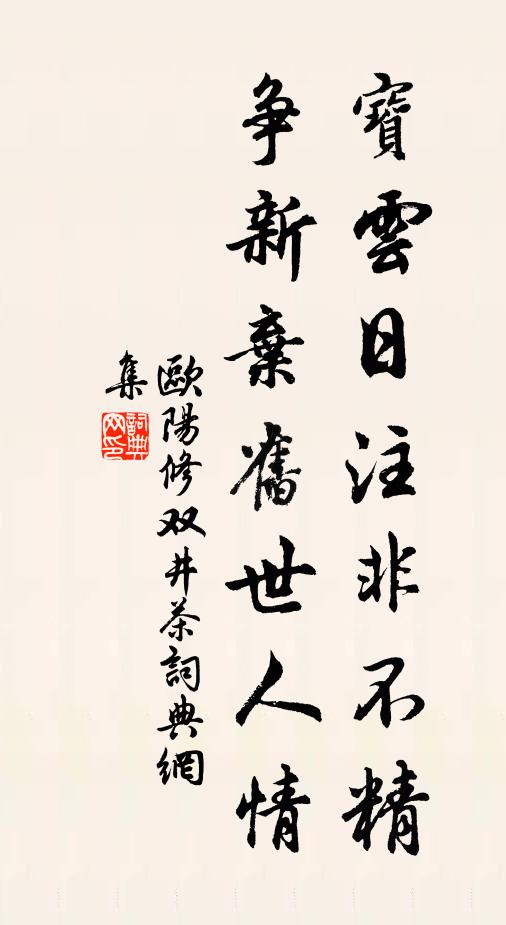 寶雲日注非不精
争新棄舊世人情
歐陽修双井茶詞典網
集
詞典網印